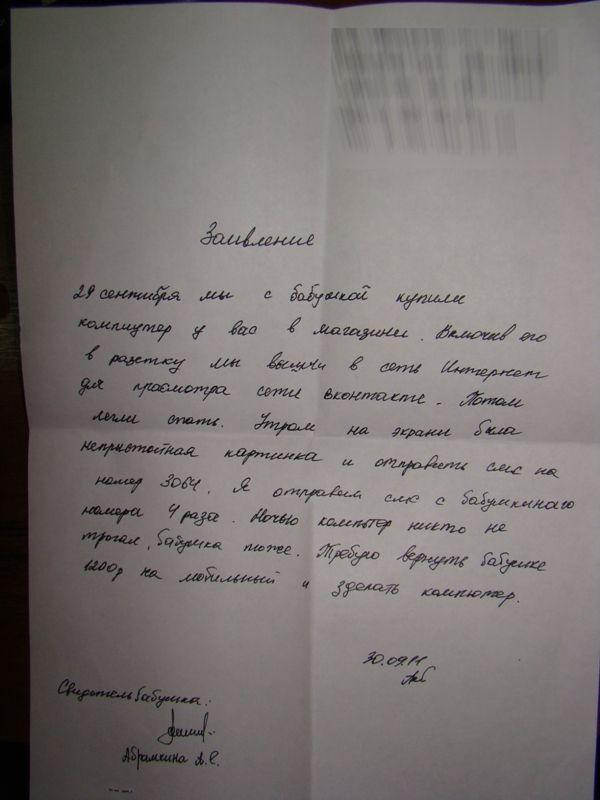 Заявление
29 сентября мы с бабушкой купили
компиутер у вас в магазини. Включив его
в разетку мы вышли в сеть Интернет
для просмотра сети вконтакте. Потом
легли спать. Утром на экрани была
непристойная картинка и отправить смс на
номер 3064. Я отправил смс с бабушкинаго
номера 4 раза. Ночью компьтор никто не
трогал, бабушка тоже. Требую вернуть бабушке
1200р на мобильный и зделать компютер.
30.09.11
Свидетель бабушка:
Абрамкина А.С.